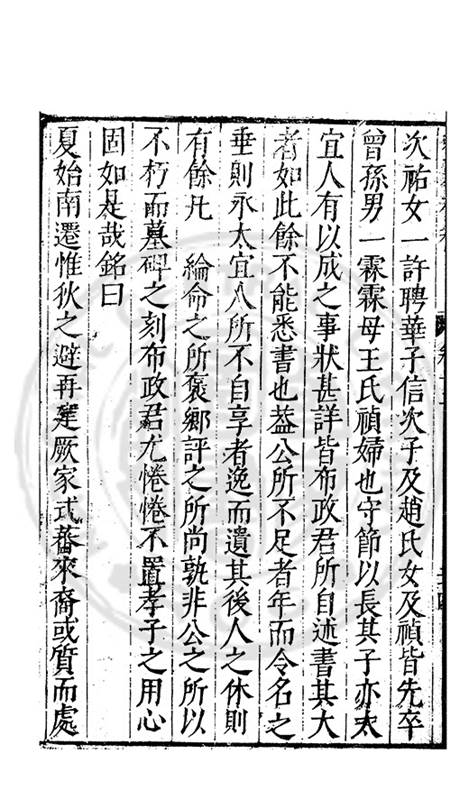 次祐女一許聘華子信次子及趙氏女及禎皆先卒
曾孫男一霖霖母王氏禎婦也守節以長其子亦太
宜人有以成之事狀甚詳皆布政君所自述書其大
者如此餘不能悉書也益公所不足者年而令名之
垂則永太宜人所不自享者逸而遺其後人之休則
有餘凡　綸命之所褒鄉評之所尚孰非公之所以
不朽而墓碑之刻布政君尤惓惓不置孝子之用心
固如是哉銘曰
夏始南遷惟狄之避再建厥家式蕃來裔或質而處